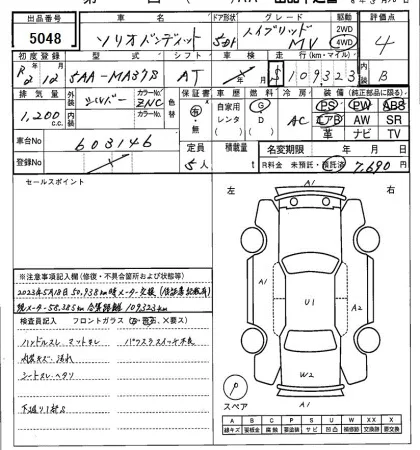 出品番号 車名 ドア形状 グレード 駆動 評価点
5048 ソリオバンディット 5DH ハイブリッド MV 2WD 4WD 4
初度登録 型式 シフト 車検 走行(km・マイル) 内装
R2 12 5AA-MA37S AT 109,323 B
排気量 外装 シルバー カラーNo. ZNC 色替 保証書 有・無 車歴 自家用 レンタ 燃料 G D 冷房 AC 装備 (純正部品に限る)
1,200 c.c. 内装 カラーNo. PS PW ABS
エアB AW SR
革 ナビ TV
車台No 603146 定員 5人 積載量 名変期限 年 月 日
登録No R料金 未預託・預託済 7,690
セールスポイント 左 右
A1
A1 U1 A2
W2
A1
スペア P
※注意事項記入欄(修復・不具合箇所および状態等)
2023年5月18日 50,938km時メーター交換(保証書記載有)
現メーター58,385km 合算距離109323km
検査員記入 フロントガラス
ハンドルスレ マットナレ パワスラスイッチ不良
内装キズ、汚れ
シートスレ・ヘタリ
下廻り1部S
A B C P S U W XX X
線キズ 要板金 腐食 要塗装 サビ 凹凸 補修跡 交換跡 要交換